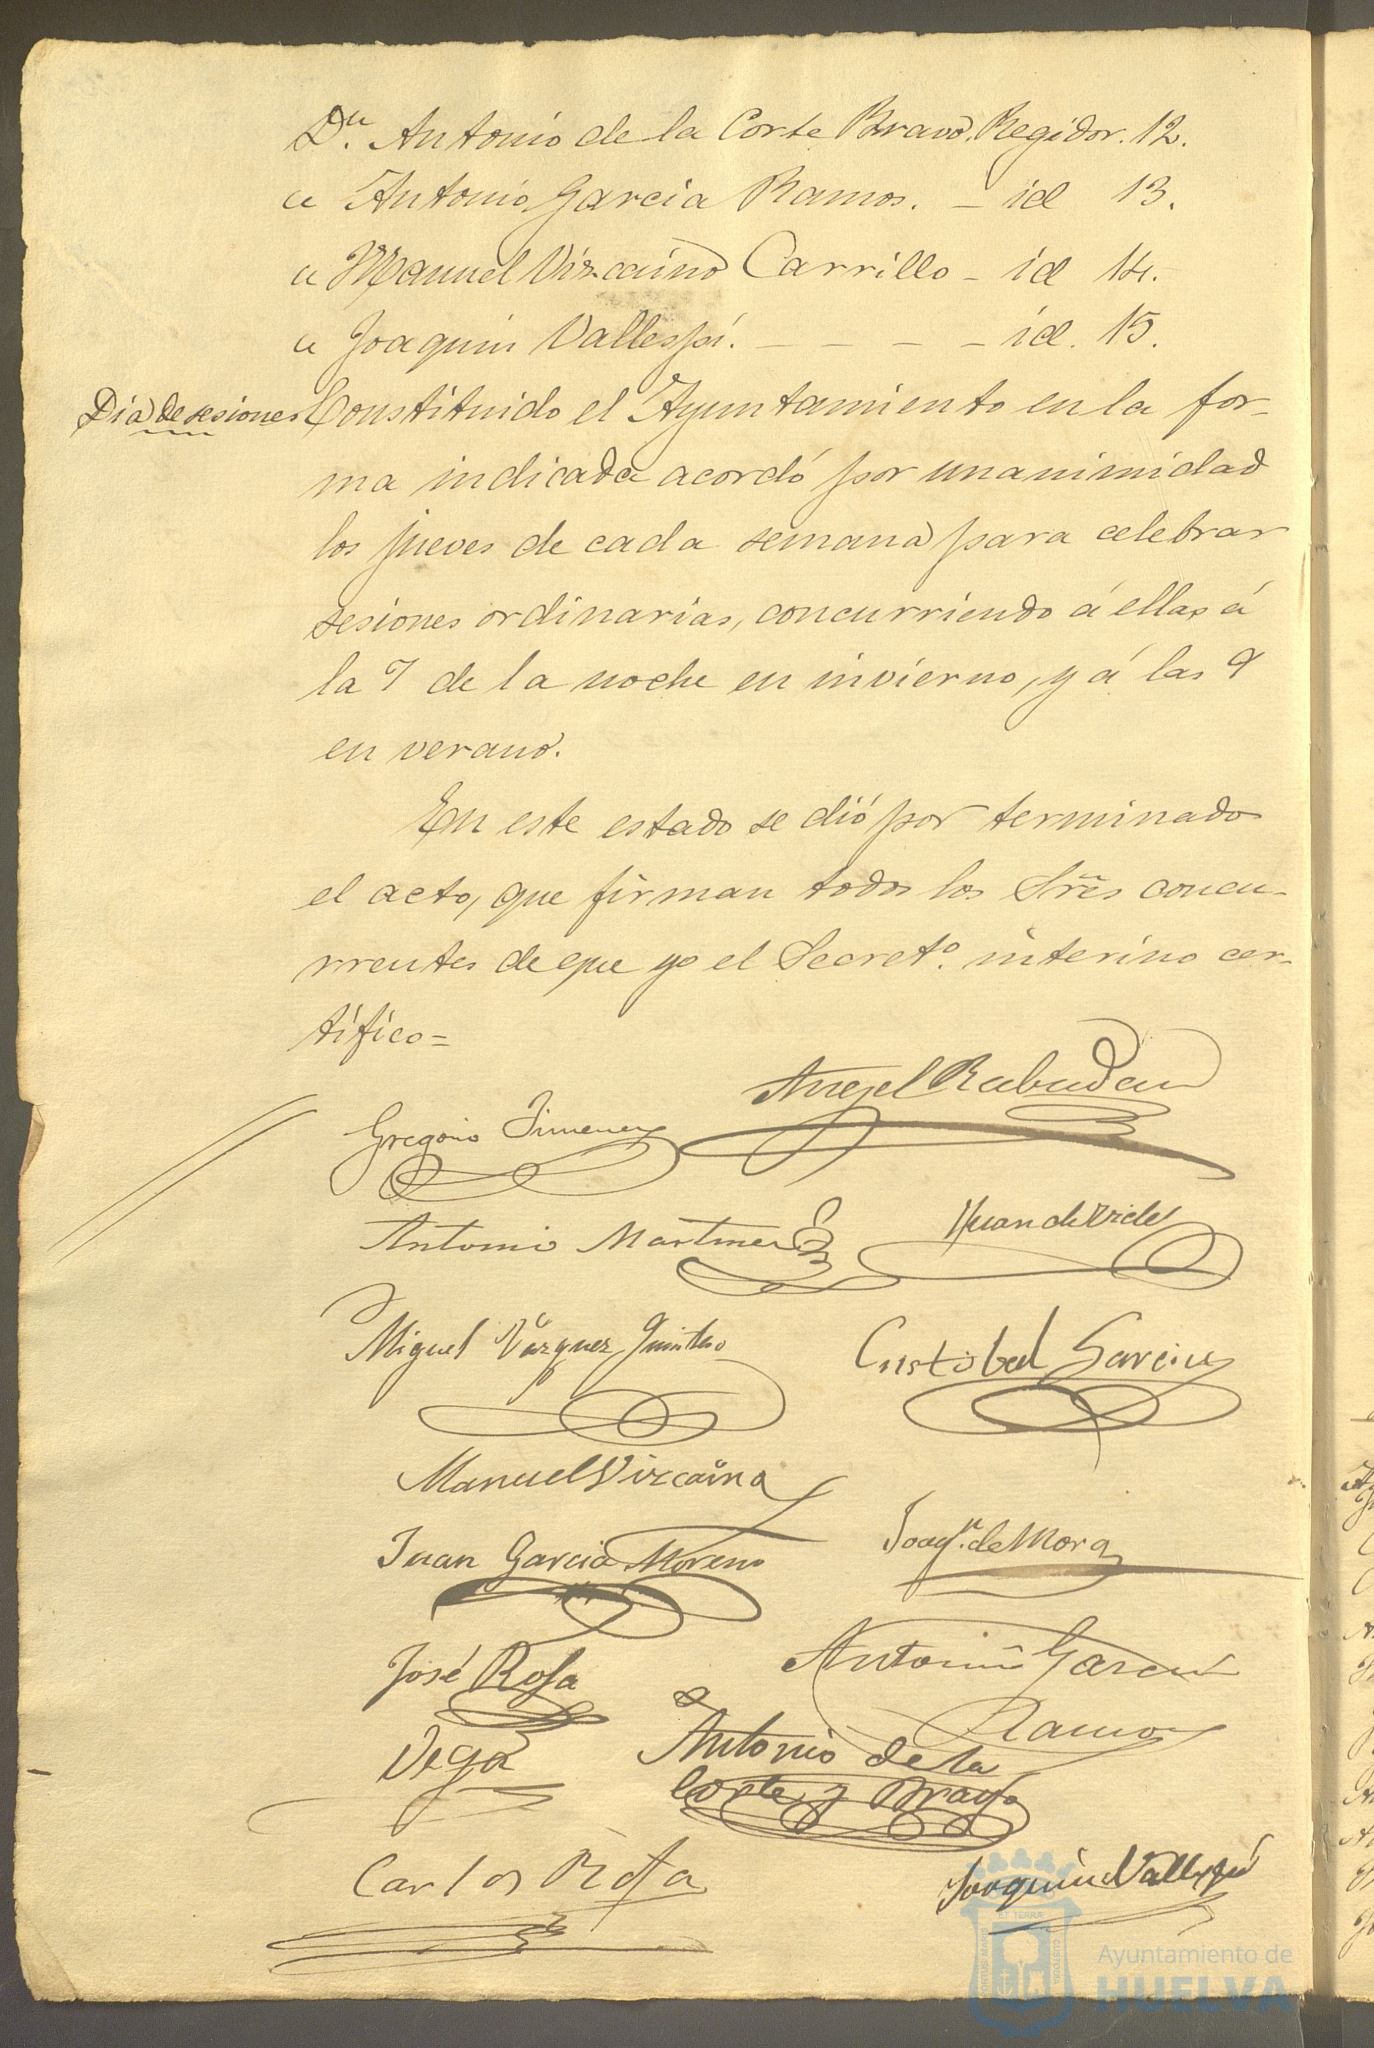 Dn. Antonio de la Corte Bravo, Regidor. 12.
" Antonio Garcia Ramos. - id 13.
" Manuel Vizcaino Carrillo - id 14.
" Joaquin Vallespi. - - - - id. 15.
Dia de sesiones Constituido el Ayuntamiento en la for-
ma indicada acordó por unanimidad
los jueves de cada semana para celebrar
sesiones ordinarias, concurriendo á ellas á
la 7 de la noche en invierno, y á las 9
en verano.
En este estado se dió por terminado
el acto, que firman todos los Srẽs concu-
rrentes de que yo el Secretº. interino cer-
tifico=
Angel Rabadan
Gregorio Jimenez
Antonio Martinez
Juan de Vides
Miguel Vázquez Quintero
Cristobal Garcia
Manuel Vizcaino
Joaqn. de Mora
Juan Garcia Moreno
José Rosa
Antonio Garcia
Ramos
Vega
Antonio de la
Corte y Bravo
Carlos Rosa
Joaquin Vallespi
Ayuntamiento de
HUELVA